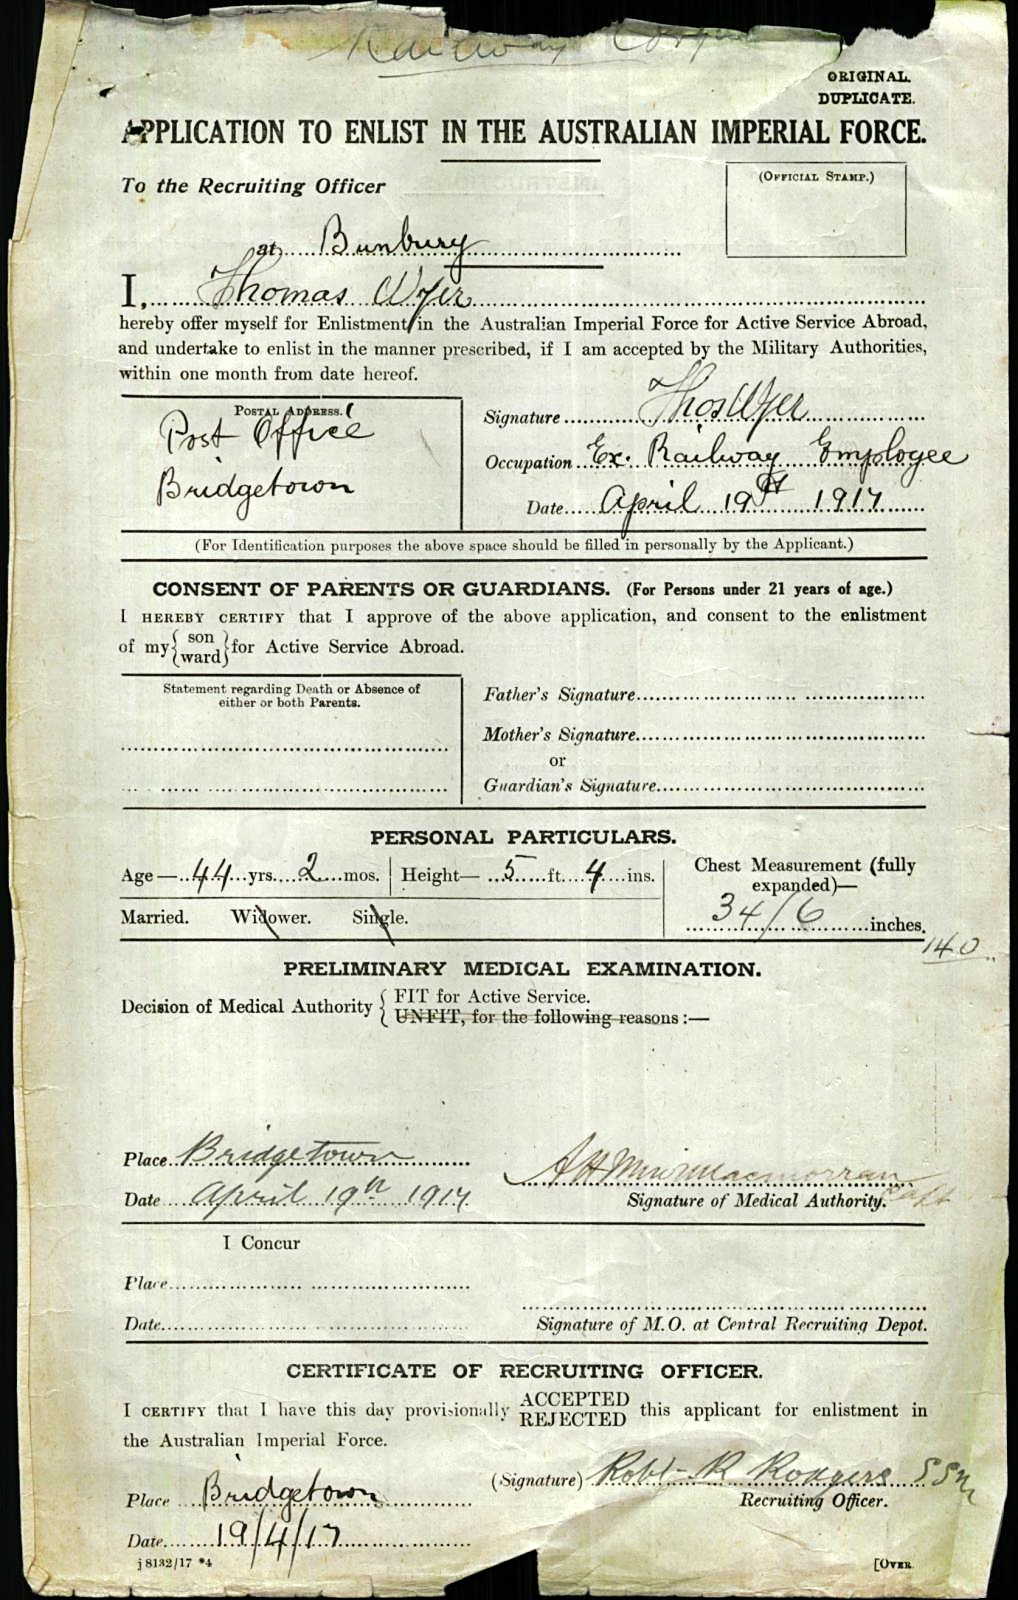 Railway
ORIGINAL.
DUPLICATE.
APPLICATION TO ENLIST IN THE AUSTRALIAN IMPERIAL FORCE.
To the Recruiting Officer
(OFFICIAL STAMP.)
at Bunbury
I, Thomas Wyer
hereby offer myself for Enlistment in the Australian Imperial Force for Active Service Abroad,
and undertake to enlist in the manner prescribed, if I am accepted by the Military Authorities,
within one month from date hereof.
POSTAL ADDRESS.
Post Office
Bridgetown
Signature Thos Wyer
Occupation Ex. Railway Employee
Date April 19th 1917
(For Identification purposes the above space should be filled in personally by the Applicant.)
CONSENT OF PARENTS OR GUARDIANS. (For Persons under 21 years of age.)
I HEREBY CERTIFY that I approve of the above application, and consent to the enlistment
of my { son
ward } for Active Service Abroad.
Statement regarding Death or Absence of
either or both Parents.
Father's Signature
Mother's Signature
or
Guardian's Signature
PERSONAL PARTICULARS.
Age — 44 yrs. 2 mos. Height — 5 ft. 4 ins.
Chest Measurement (fully
expanded)—
34/6 inches.
Married. Widower. Single.
140
PRELIMINARY MEDICAL EXAMINATION.
Decision of Medical Authority { FIT for Active Service.
UNFIT, for the following reasons :—
Place Bridgetown
Date April 19th 1917
Signature of Medical Authority.
I Concur
Place
Date
Signature of M.O. at Central Recruiting Depot.
CERTIFICATE OF RECRUITING OFFICER.
I CERTIFY that I have this day provisionally ACCEPTED
REJECTED this applicant for enlistment in
the Australian Imperial Force.
(Signature) Robt R Rodgers
Recruiting Officer.
Place Bridgetown
Date 19/4/17
j 8132/17 *4
[OVER